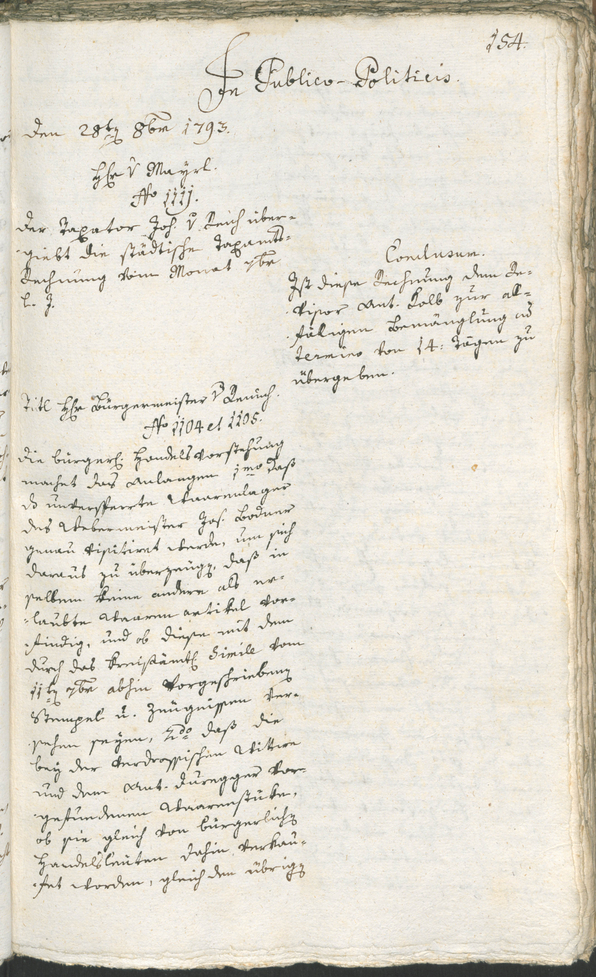 154.
In Publico-Politicis.
den 28ten 8bre 1793.
Hr v Mayrl.
No 1111.
der Taxator Joh. v. Reich über-
giebt die städtische Taxamts-
Rechnung vom Monat 7bre
l. J.
Conclusum.
Ist diese Rechnung dem Re-
visor Ant. Kolb zur all-
fäligen Bemänglung ad
termino von 14: Tägen zu
übergeben.
Titl Hr Bürgermeister v
No 1104 et 1105.
die bürgerl: Handelsvorstehung
machet das Anlangen 1mo daß
das unversperrte Waarenlager
des Webermeister Jos. Bodner
genau visitiret werde, um sich
daraus zu überzeugen, daß in
selbem keine andere als er-
laubte Waaren artikel vor-
findig, und ob diese mit dem
durch das kreisämtl: Simile vom
11ten 7bre abhin vorgeschriebenen
Stempel u. Zeugnissen ver-
sehen seyen, 2do daß die
bey der Verdrossischen Wittwe
und dem Ant. Duregger vor-
gefundenen Waarenstüke,
ob sie gleich von bürgerlichen
Handelsleuten dahin verkau-
fet worden, gleich den übrigen